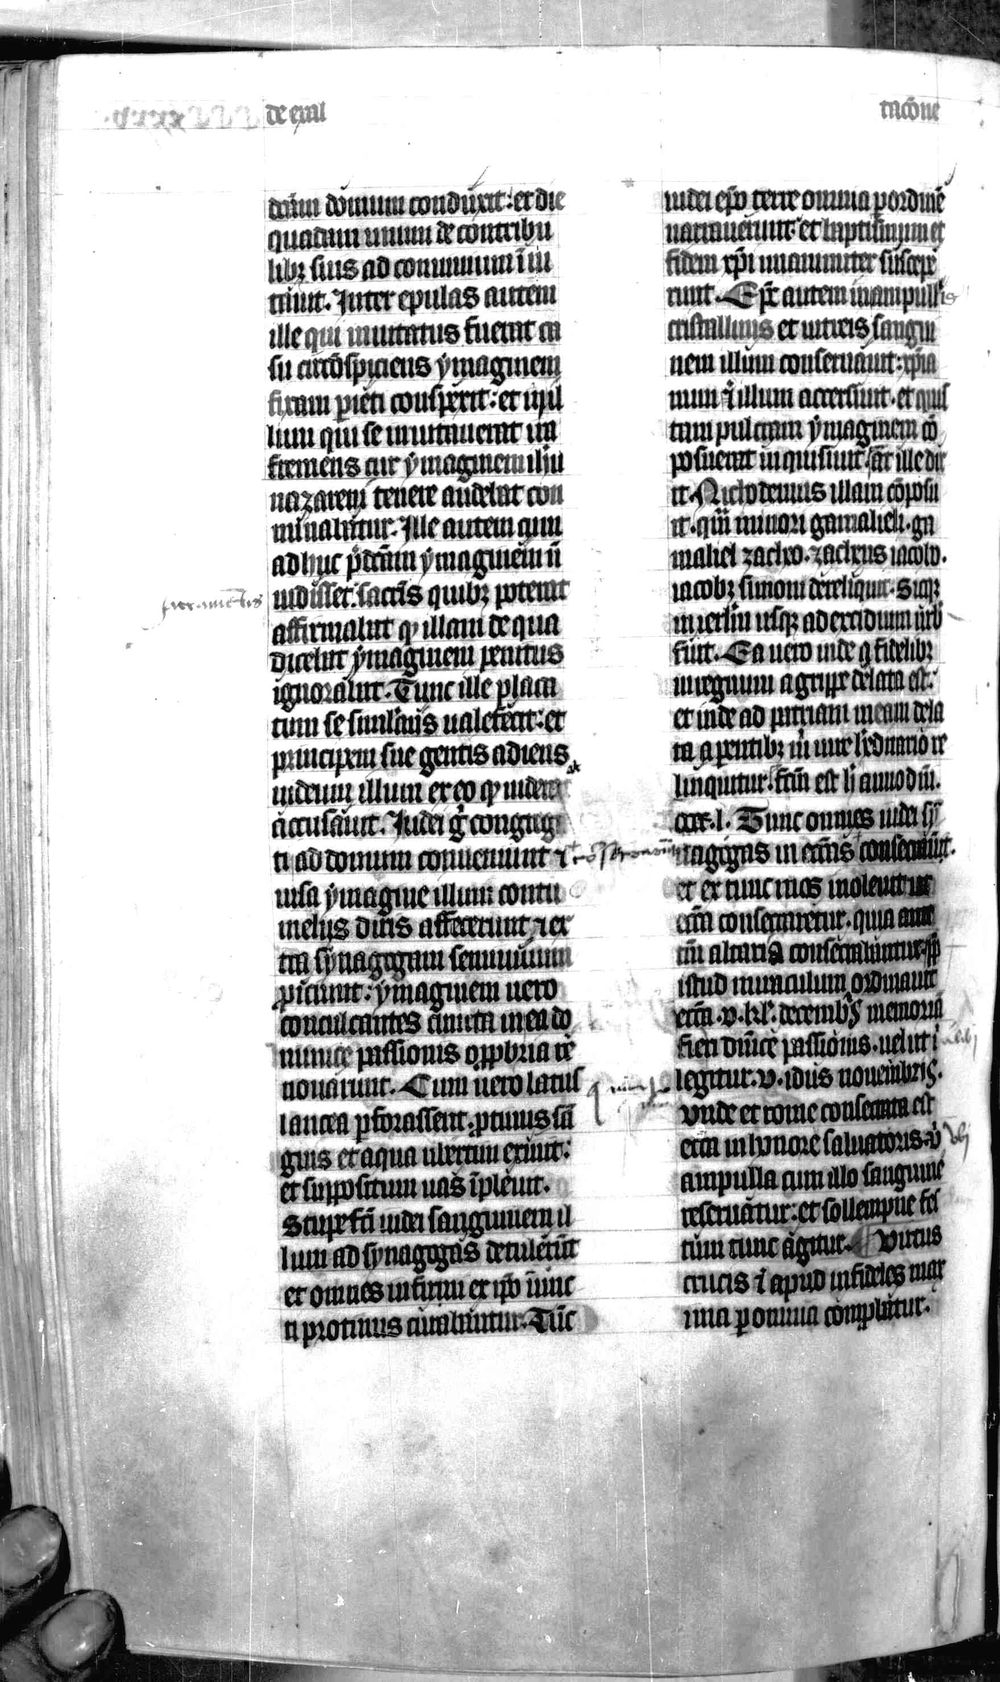 de exal
tacōne
dictam domum conduxit: et die
quadam unum de contribu
libꝫ suis ad conuiuium īui
tauit. Inter epulas autem
ille qui inuitatus fuerat ca
su circūspiciens ymaginem
fixam pieti conspexit: et in il
lum qui se inuitauerat ita
fremens cur ymaginem ihu
nazareni tenere audebat con
minabatur. Ille autem qum
adhuc p̄dcām ymaginem nō
uidisset. sacrīs quibꝫ poterat
affirmabat qꝫ illam de qua
dicebat ymaginem penitus
ignorabat. Tunc ille placa
tum se simlans ualefecit: et
principem sue gentis adiens
iudeum illum ex eo qꝫ uiderat
accusauit. Iudei gͦ congrega
ti ad domum conueniunt
uisa ymagine illum contu
melijs diris affecerunt ⁊ ex
tra synagogam semiuiuum
ꝓicunt: ymaginem uero
conculcantes cuncta in ea do
minice passionis opprobria re
nouarunt. Cum uero latus
lancea ꝑforassent. ꝓtinus sā
guis et aqua ubertim exiuit:
et suppositum uas īpleuit.
Stupefcī iudei sanguinem il
lum ad synagogas detulerūt
et omnes infirmi ex ip̄o unc
ti protinus curabantur. Tūc
iudei ep̄o terre omnia ꝑ ordinē
narrauerunt et baptismum et
fidem xp̄i unanimiter suscepe
runt. Ep̄c autem in ampullis
cristallinis et uitreis sangui
nem illum conseruauit: xp̄ia
num ꝗ illum accersiuit. et quis
tam pulcram ymaginem cō
posuerat inquisiuit. at ille dix
it. Nichodemus illam cōposu
it. qui moriens gamalieli. ga
maliel zacheo. zacheus iacobo.
iacobꝫ simoni dereliquit. Sicqꝫ
in ierlm usqꝫ ad excidium urb
fuit. Ea uero inde a fidelibꝫ
in regnum agrippe delata est.
et inde ad patriam meam dela
ta a parentibꝫ m̄ iure hēditario re
linquitur. fctm̄ est h̄ anno dn̄i.
ccc. l. Tunc omnes iudei sy
nagogas in ecc̄as consecrauūt.
et ex tunc mos inoleuit ut
ecc̄a consecraretur. quia ante
tm̄ altaria consecrabantur. ꝓp̄
istud miraculum ordinauit
ecc̄a .v. kl'. decembꝫ memoriā
fieri dnīce passionis. uel ut ī
legitur .v. idus nouembris.
vnde et rome consecrata est
ecc̄a in honore saluatoris. vͥ
ampulla cum illo sanguine
reseruatur: et sollempne fes
tum tunc agitur. Virtus
crucis ⁊ apud infideles max
ima ꝑ omnia comꝓbatur.